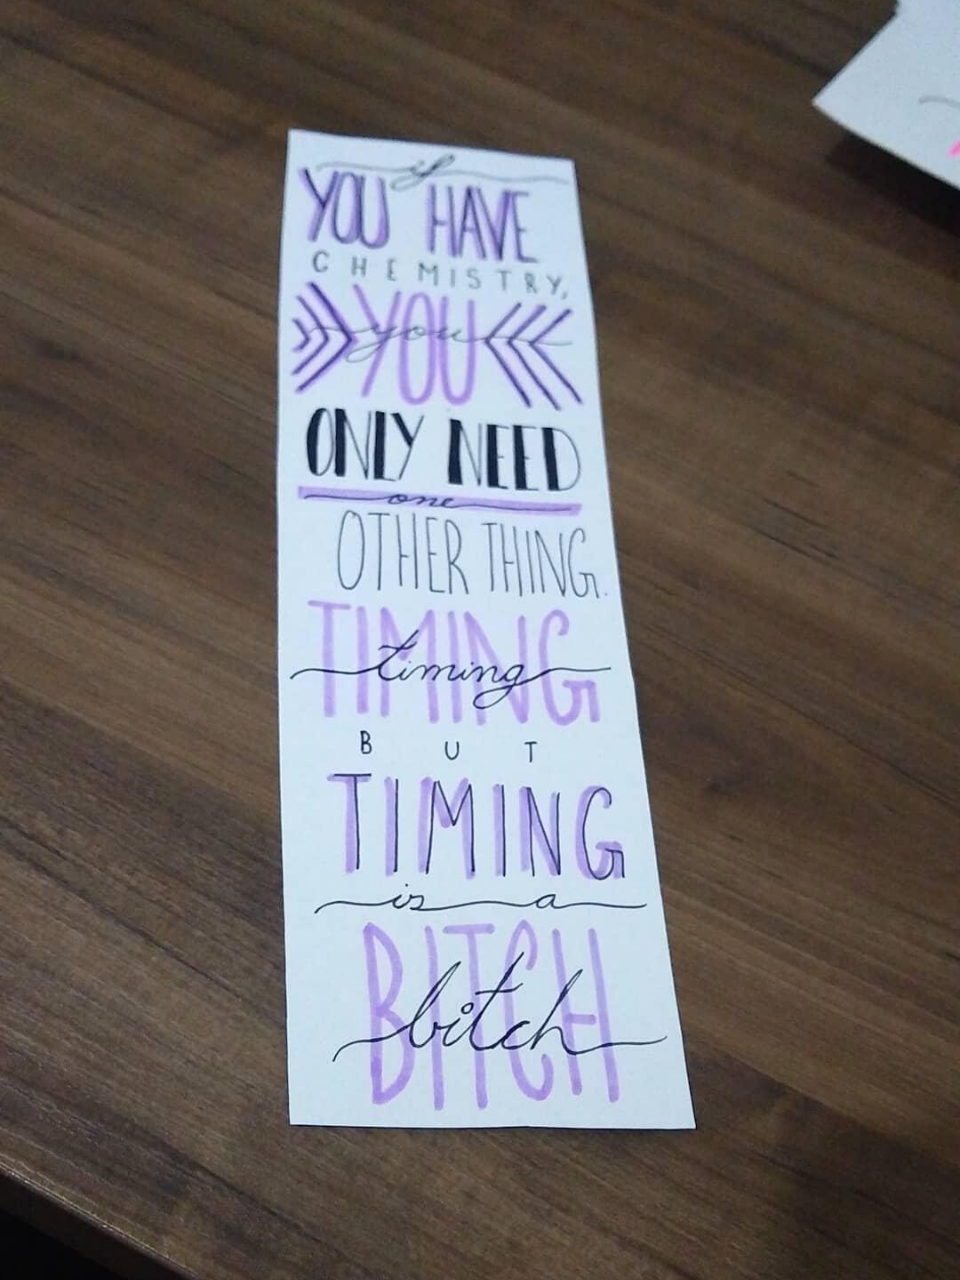 if
YOU HAVE
CHEMISTRY,
YOU
you
ONLY NEED
one
OTHER THING.
TIMING
timing
BUT
TIMING
is a
BITCH
bitch